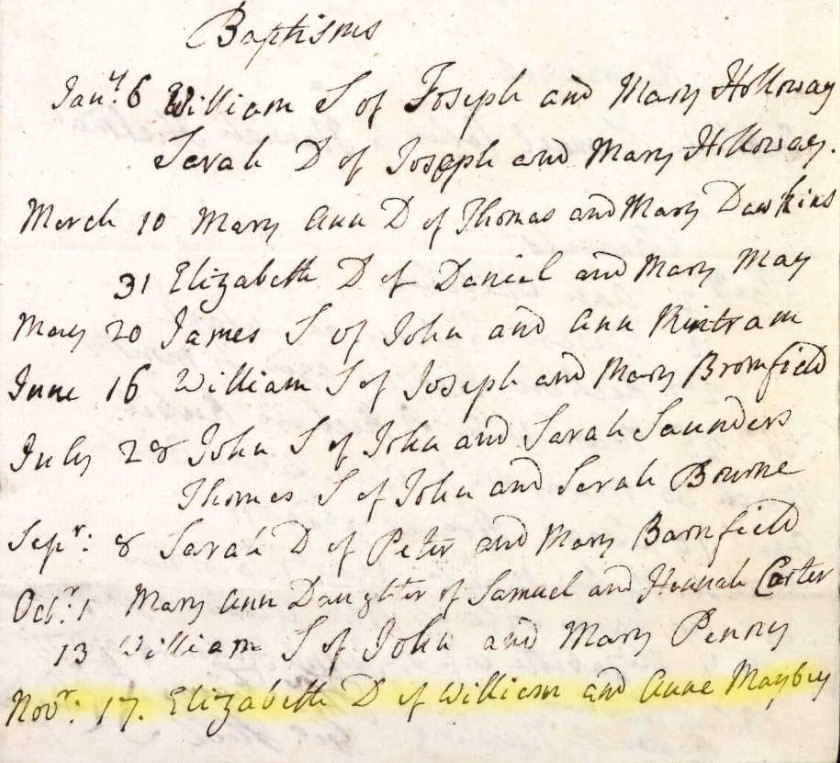 Baptisms
Jany. 6 William S of Joseph and Mary Holloway
Sarah D of Joseph and Mary Holloway.
March 10 Mary Ann D of Thomas and Mary Dawkins
31 Elizabeth D of Daniel and Mary May
May 20 James S of John and Ann Rintram
June 16 William S of Joseph and Mary Bromfield
July 28 John S of John and Sarah Saunders
Thomas S of John and Sarah Bourne
Sepr: 8 Sarah D of Peter and Mary Barnfield
Octr: 1 Mary Ann Daughter of Samuel and Hannah Carter
13 William S of John and Mary Penny
Novr: 17. Elizabeth D of William and Anne Maybey